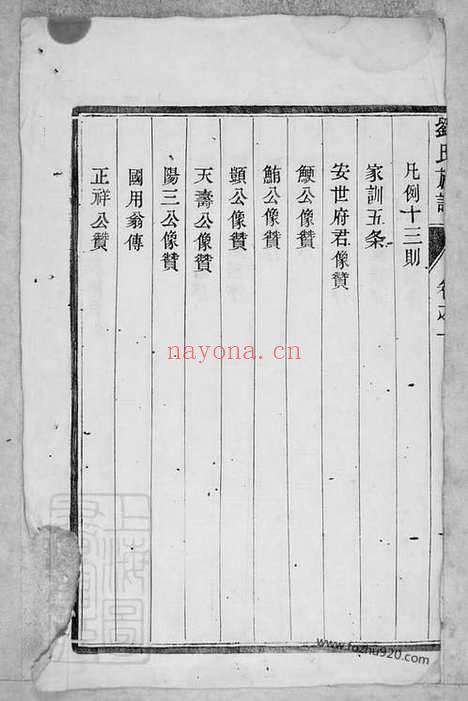 劉氏族譜
卷之一
凡例十三則
家訓五条
安世府君像贊
鯁公像贊
鮪公像贊
顗公像贊
天壽公像贊
陽三公像贊
國用翁傳
正祥公贊
nayona.cn
www.fozhu920.com